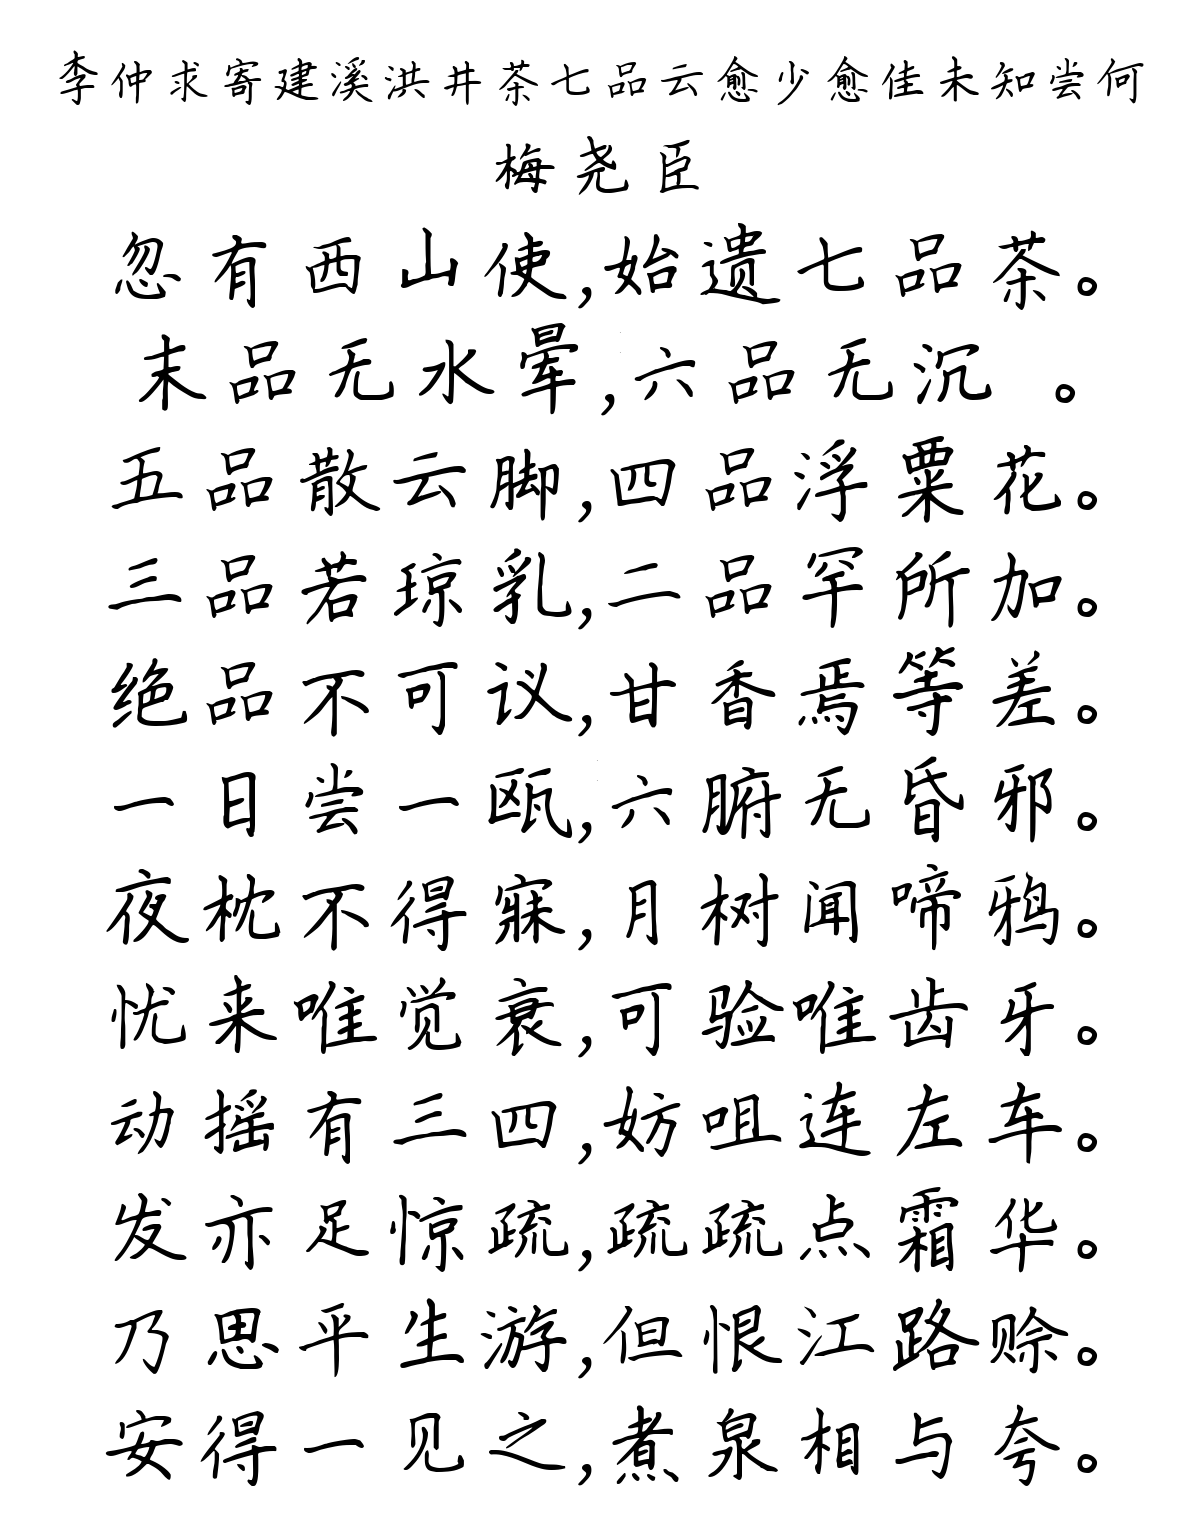 李仲求寄建溪洪井茶七品云愈少愈佳未知尝何
梅尧臣
忽有西山使,始遗七品茶。
末品无水晕,六品无沉 。
五品散云脚,四品浮粟花。
三品若琼乳,二品罕所加。
绝品不可议,甘香焉等差。
一日尝一瓯,六腑无昏邪。
夜枕不得寐,月树闻啼鸦。
忧来唯觉衰,可验唯齿牙。
动摇有三四,妨咀连左车。
发亦足惊疏,疏疏点霜华。
乃思平生游,但恨江路赊。
安得一见之,煮泉相与夸。